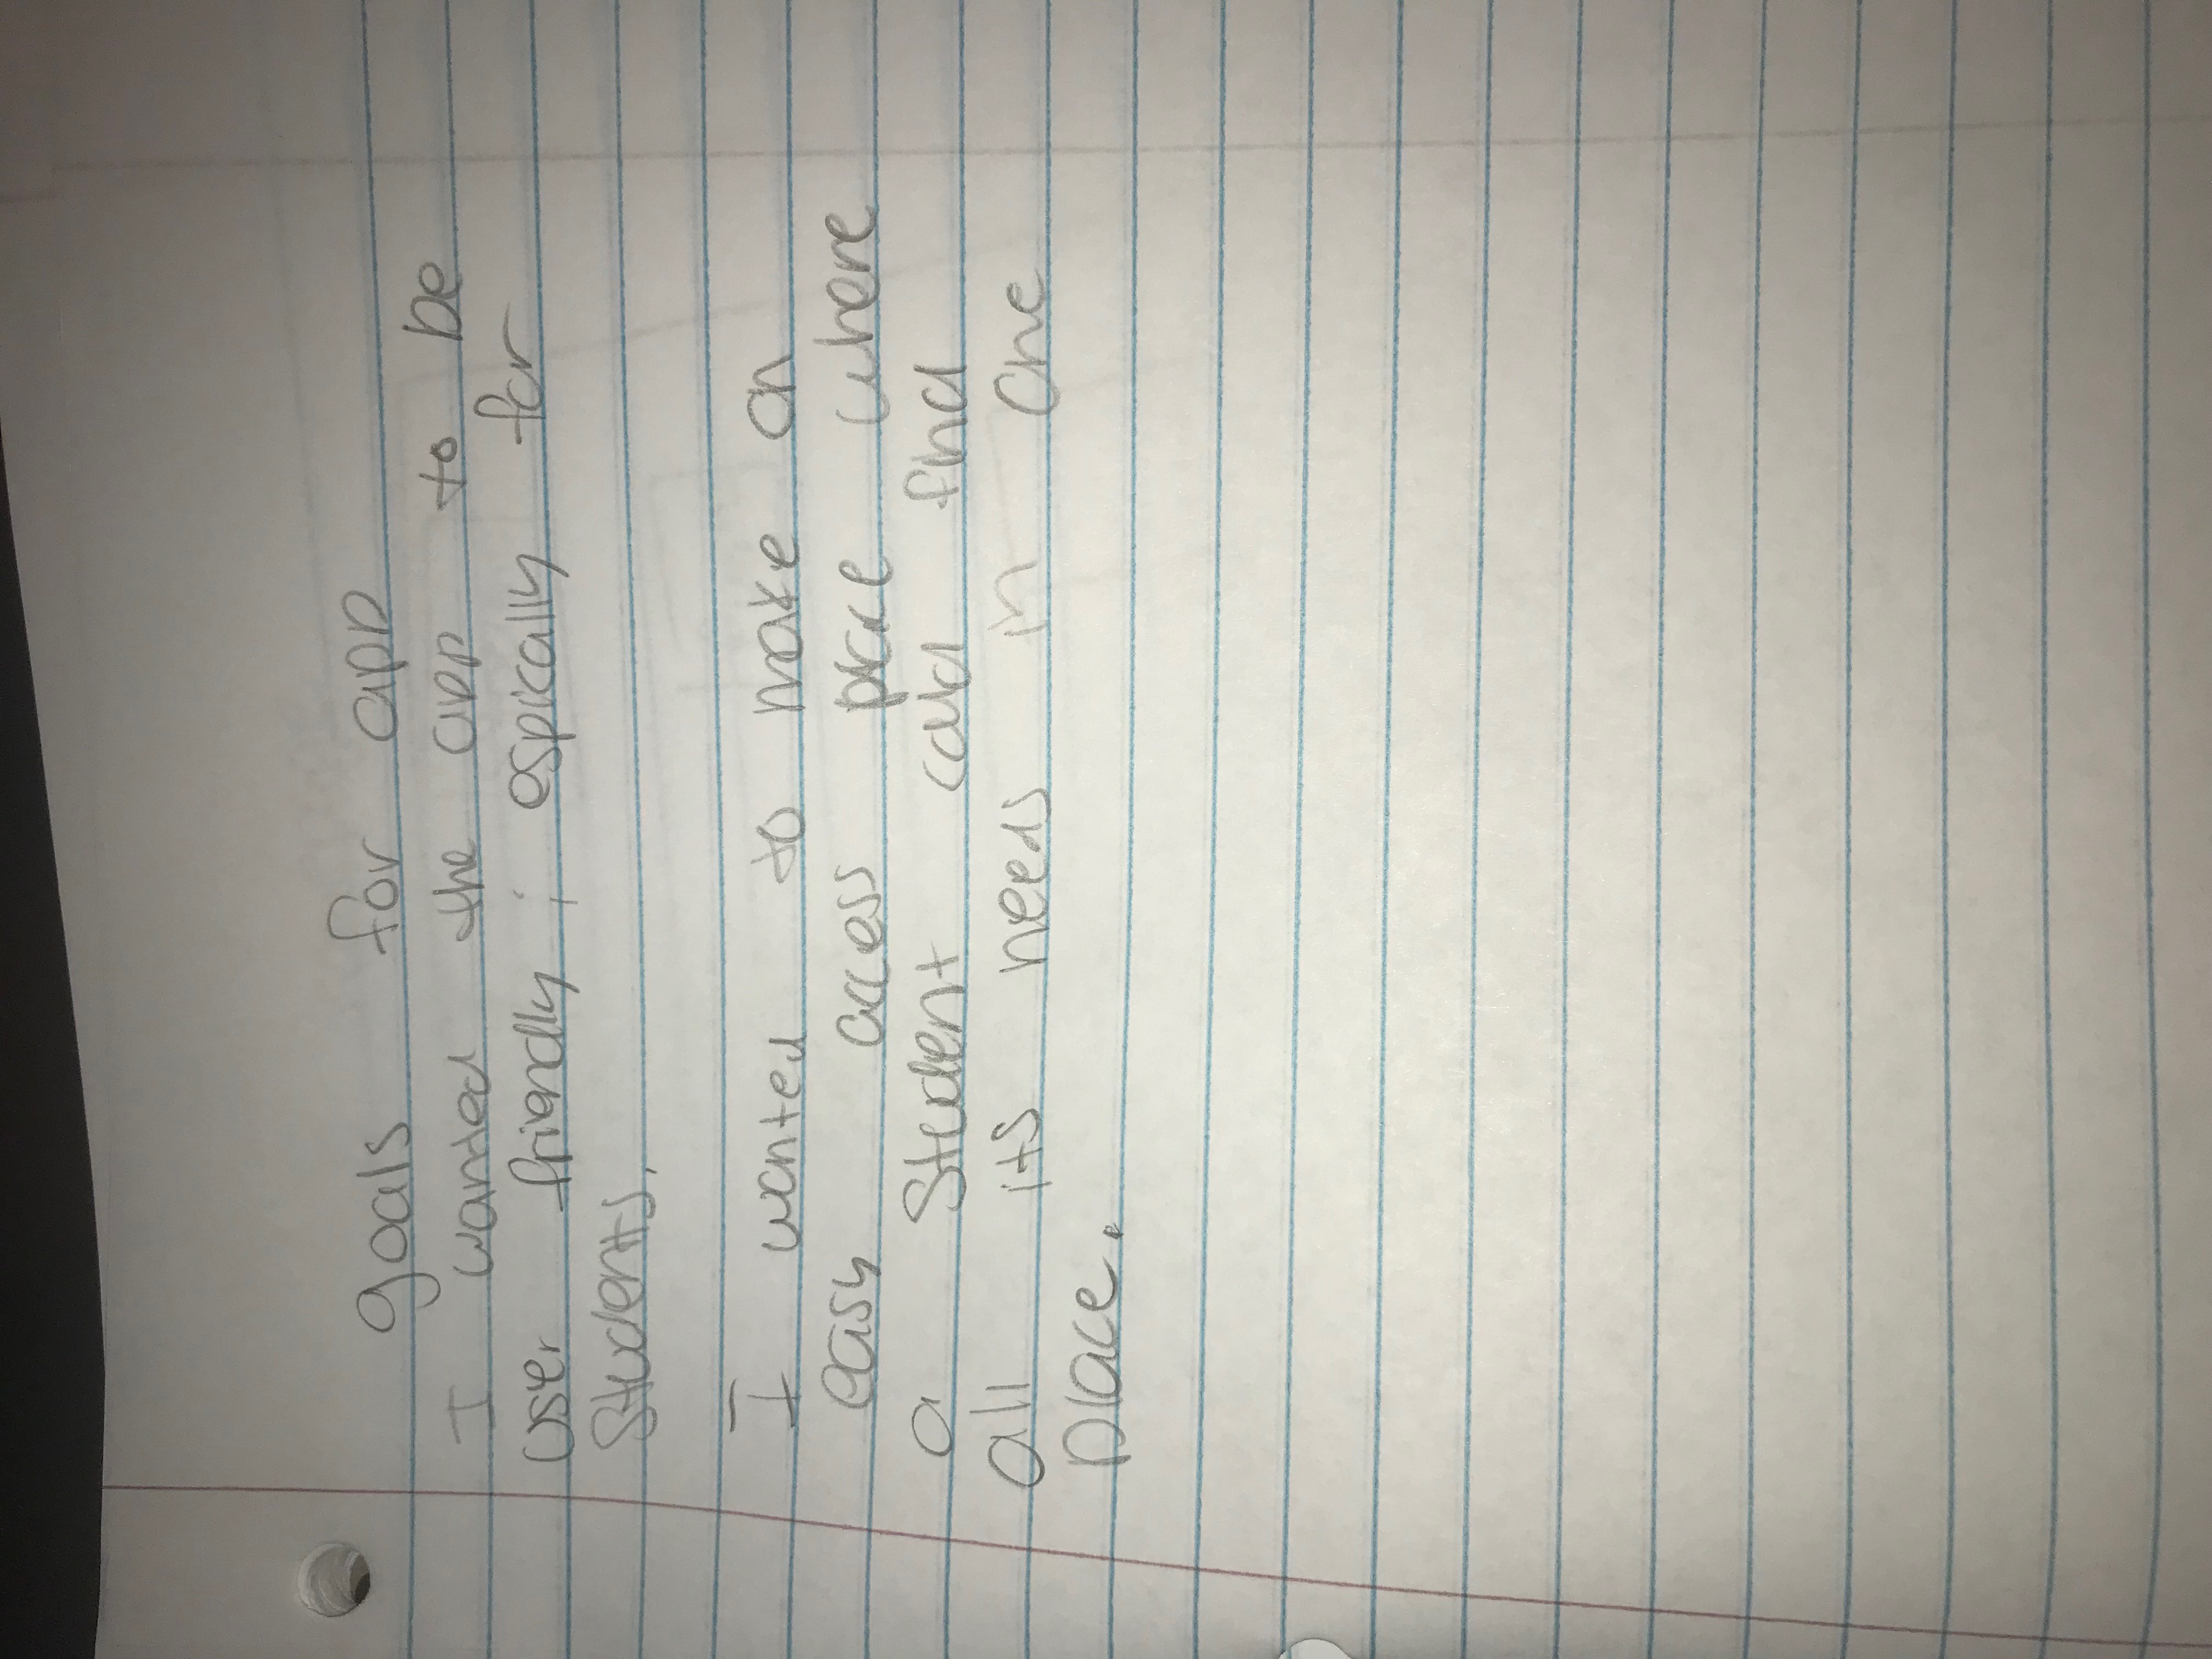 goals for app
I wanted the app to be
user friendly ; espically for
Students.
I wanted to make an
easy access place where
a Student could find
all its needs in one
place.